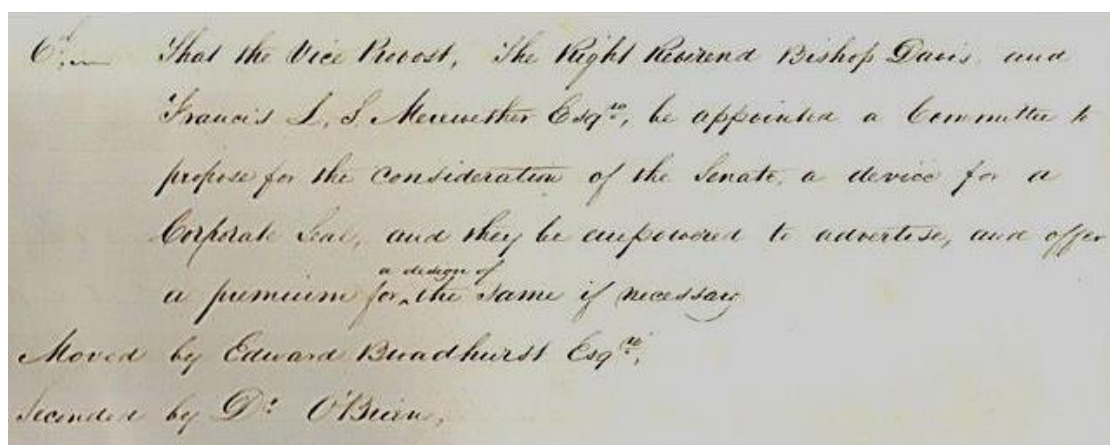 6th That the Vice Provost, The Right Reverend Bishop Davis, and
Francis L. S. Merewether Esqre, be appointed a Committee to
propose for the consideration of the Senate, a device for a
Corporate Seal, and they be empowered to advertise, and offer
a design of
a premium for ‸ the same if necessary
Moved by Edward Broadhurst Esqre,
Seconded by Dr. O'Brien,